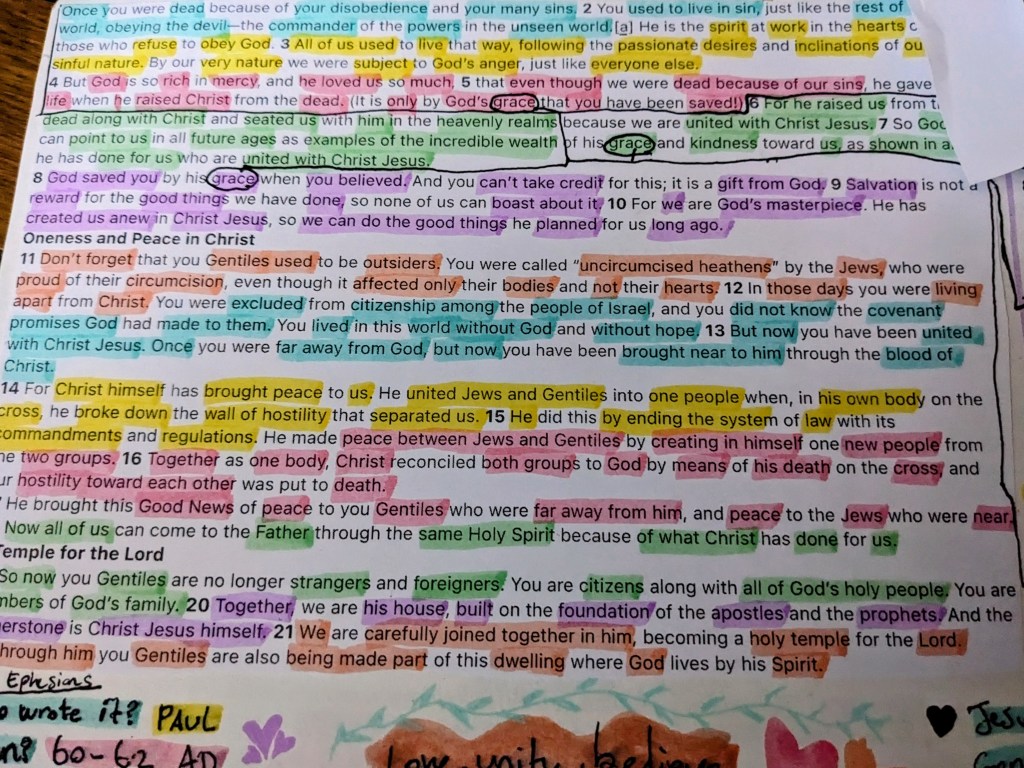 Once you were dead because of your disobedience and your many sins. 2 You used to live in sin, just like the rest of
world, obeying the devil—the commander of the powers in the unseen world.[a] He is the spirit at work in the hearts
those who refuse to obey God. 3 All of us used to live that way, following the passionate desires and inclinations of ou
sinful nature. By our very nature we were subject to God's anger, just like everyone else.
4 But God is so rich in mercy, and he loved us so much, 5 that even though we were dead because of our sins, he gave
life when he raised Christ from the dead. (It is only by God's grace that you have been saved!) 6 For he raised us from
dead along with Christ and seated us with him in the heavenly realms because we are united with Christ Jesus. 7 So God
can point to us in all future ages as examples of the incredible wealth of his grace and kindness toward us, as shown in a
he has done for us who are united with Christ Jesus.
8 God saved you by his grace when you believed. And you can't take credit for this; it is a gift from God. 9 Salvation is not a
reward for the good things we have done, so none of us can boast about it. 10 For we are God's masterpiece. He has
created us anew in Christ Jesus, so we can do the good things he planned for us long ago.
Oneness and Peace in Christ
11 Don't forget that you Gentiles used to be outsiders. You were called "uncircumcised heathens" by the Jews, who were
proud of their circumcision, even though it affected only their bodies and not their hearts. 12 In those days you were living
apart from Christ. You were excluded from citizenship among the people of Israel, and you did not know the covenant
promises God had made to them. You lived in this world without God and without hope. 13 But now you have been united
with Christ Jesus. Once you were far away from God, but now you have been brought near to him through the blood of
Christ.
14 For Christ himself has brought peace to us. He united Jews and Gentiles into one people when, in his own body on the
cross, he broke down the wall of hostility that separated us. 15 He did this by ending the system of law with its
commandments and regulations. He made peace between Jews and Gentiles by creating in himself one new people from
he two groups. 16 Together as one body, Christ reconciled both groups to God by means of his death on the cross, and
ur hostility toward each other was put to death.
He brought this Good News of peace to you Gentiles who were far away from him, and peace to the Jews who were near.
Now all of us can come to the Father through the same Holy Spirit because of what Christ has done for us.
Temple for the Lord
So now you Gentiles are no longer strangers and foreigners. You are citizens along with all of God's holy people. You are
mbers of God's family. 20 Together, we are his house, built on the foundation of the apostles and the prophets. And the
nerstone is Christ Jesus himself. 21 We are carefully joined together in him, becoming a holy temple for the Lord.
hrough him you Gentiles are also being made part of this dwelling where God lives by his Spirit.
Ephesians
o wrote it? PAUL
en? 60-62 AD
Love, unity,
Jesu